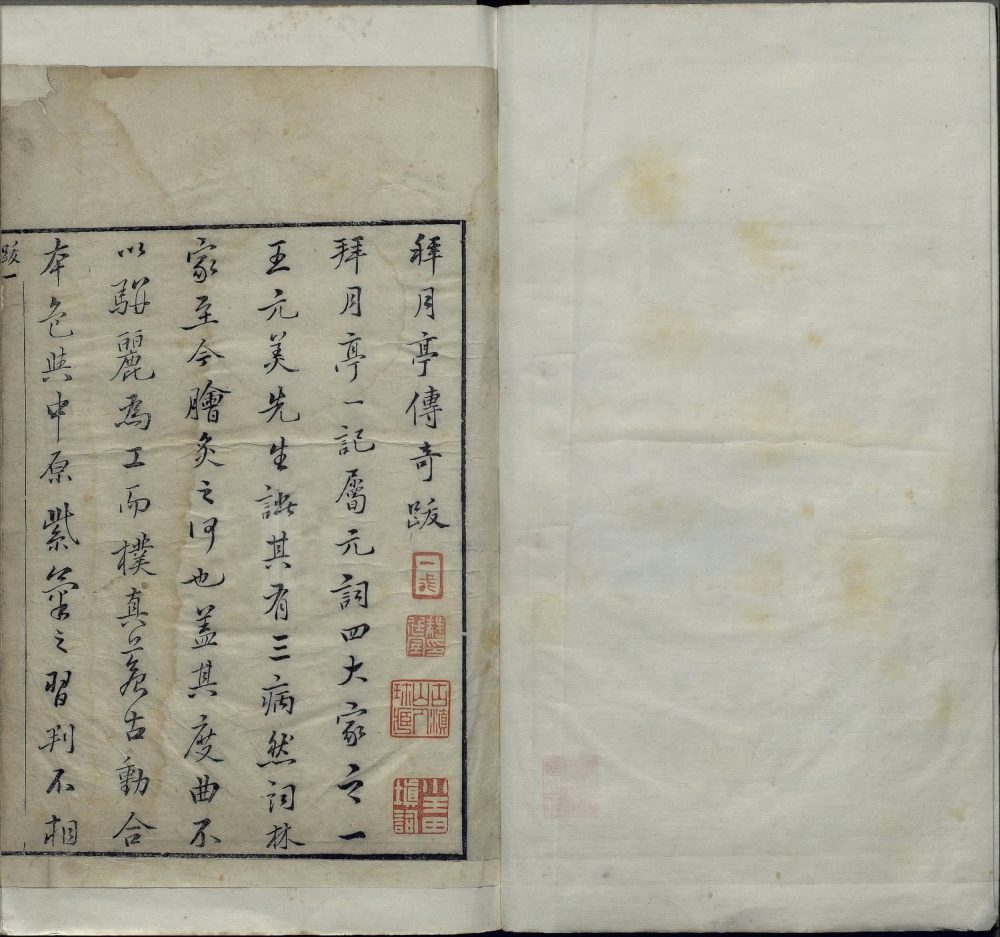 拜月亭傳奇跋
拜月亭一記屬元詞四大家之一
王元美先生謔其有三病然詞林
家至今膾炙之何也蓋其度曲不
以駢麗爲工而樸真蒼古動合
本色與中原紫氣之習判不相
跋一